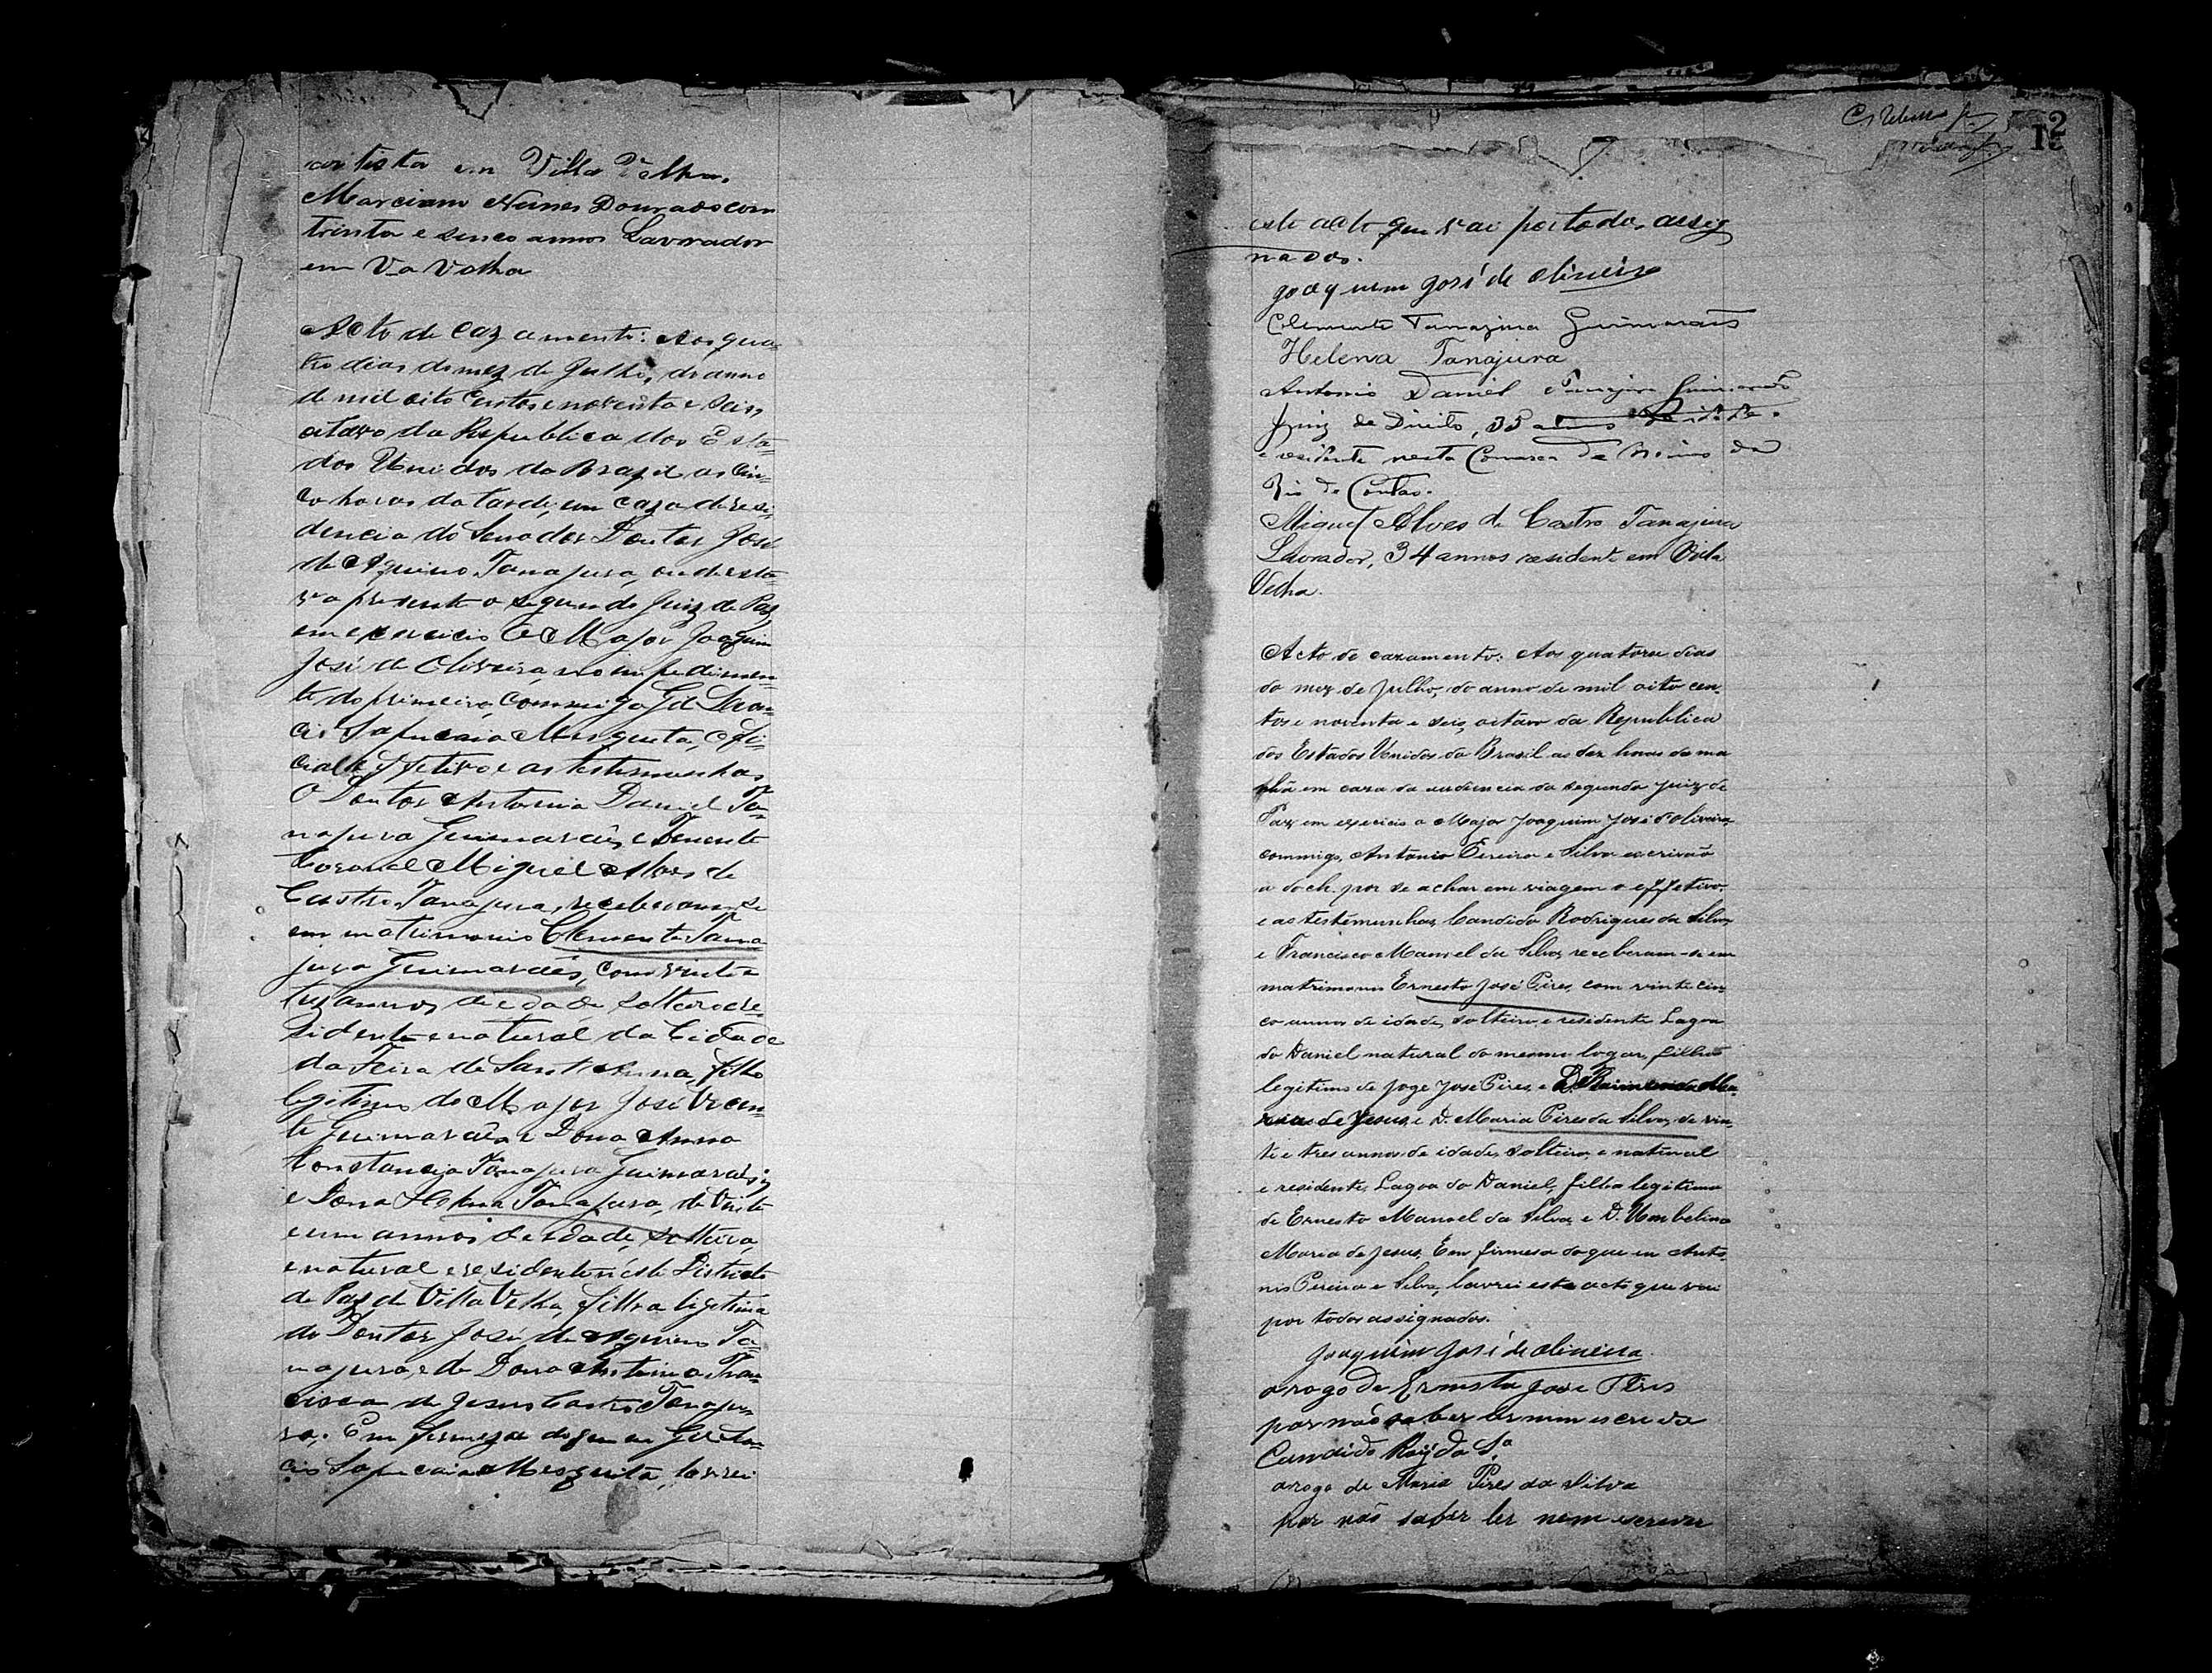 artista em Villa Velha.
Marciano Nunes Dourado com
trinta e sinco annos Lavrador
em Va Velha
Acto de cazamento: Aos qua-
tro dias do mez de Julho, do anno
de mil oito centos e noventa e seis,
oitavo da Republica dos Esta-
dos Unidos do Brazil as cin-
co horas da tarde, em caza de resi-
dencia do Senador Doutor José
de Aquino Tanajura, onde esta-
va presente o segundo Juiz de Paz
em exercicio o Major Joaquim
José de Oliveira, no impedimen-
to do primeiro, commigo
Sapucaia Mesquita, offi-
cial effetivo e as testimunhas
O Doutor Antonio Daniel Ta-
najura Guimarães e Tenente
Coronel Miguel Alves de
Castro Tanajura, receberam-se
em matrimonio Clemente Tana-
jura Guimarães, com vinte e
tres annos de edade solteiro e re-
sidente e natural da Cidade
da Feira de Sant'Anna, filho
legitimo do Major José Vicen-
te Guimarães e Dona Anna
Constança Tanajura Guimarães;
e Dona Helena Tanajura, de vinte
e um annos de edade, solteira,
e natural e residente n'este Districto
de Paz de Villa Velha, filha legitima
do Doutor José de Aquino Ta-
najura, e de Dona Antonia Fran-
cisca de Jesus Castro Tanaju-
ra. Em firmeza do que eu
Sapucaia Mesquita, lavrei
12
este acto que vai por todos assig
nados.
Joaquim José de Oliveira
Clemente Tanajura Guimarães
Helena Tanajura
Antonio Daniel Tanajura Guimarães
Juiz de Direito, 35 annos
e residente nesta Comarca de Minas do
Rio de Contas.
Miguel Alves de Castro Tanajura
Lavrador, 34 annos residente em Villa
Velha.
Acto de cazamento: Aos quatorze dias
do mez de Julho, do anno de mil oito cen
tos e noventa e seis, oitavo da Republica
dos Estados Unidos do Brasil as dez horas da ma
nhã em caza da audiencia do segundo juiz de
Paz em exercicio o Major Joaquim José d'Oliveira,
commigo, Antonio Pereira e Silva escrivão
a doch. por se achar em viagem o effetivo,
e as testemunhas, Candido Rodrigues da Silva,
e Francisco Manoel da Silva, receberam-se em
matrimonio Ernesto José Pires, com vinte cin
co annos de idade, solteiro, e residente Lagoa
do Daniel natural do mesmo logar, filho
legitimo de Joze José Pires, e D. Raimunda Ma
ria de Jesus, e D. Maria Pires da Silva, de vin
te e tres annos de idade, solteira, e natural
e residente, Lagoa do Daniel, filha legitima
de Ernesto Manoel da Silva, e D. Umbelina
Maria de Jesus. Em firmesa do que eu Anto
nio Pereira e Silva, lavrei este acto que vai
por todos assignados.
Joaquim José de Oliveira.
arogo de Ernesto Jose Pires
por não saber ler nem escrever
Candido Roiz da Sa
arogo de Maria Pires da Silva
por não saber ler nem escrever